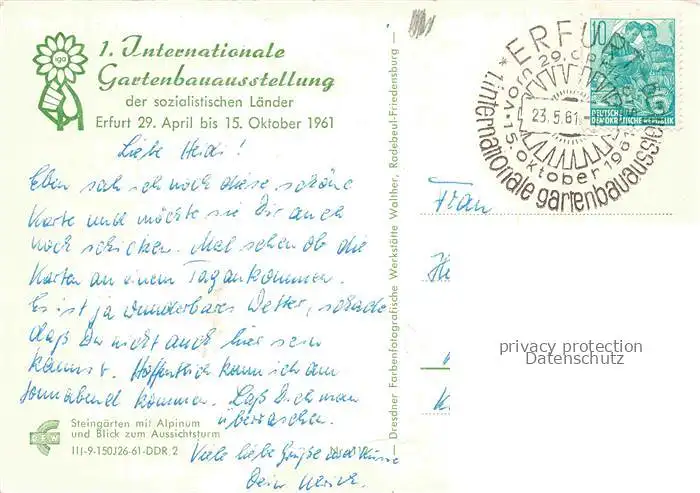 iga
1. Internationale
Gartenbauausstellung
der sozialistischen Länder
Erfurt 29. April bis 15. Oktober 1961
Liebe Heidi!
Eben sah ich noch diese schöne
Karte und möchte sie Dir auch
noch schicken. Mal sehen ob die
Karten an einem Tag ankommen.
Es ist ja wunderbares Wetter, schade
daß Du nicht auch hier sein
kannst. Hoffentlich kann ich am
Sonnabend kommen. Laß Dich man
überraschen.
Viele liebe Grüße und Küsse
Dein
Steingärten mit Alpinum
und Blick zum Aussichtsturm
III-9-150J26-61-DDR. 2
Dresdner Farbenfotografische Werkstätte Walther, Radebeul-Friedensburg
ERFURT
23.5.61
1. internationale gartenbauausstellung
15. oktober 1961
10
DEUTSCHE
DEMOKRATISCHE REPUBLIK
Frau
privacy protection
Datenschutz